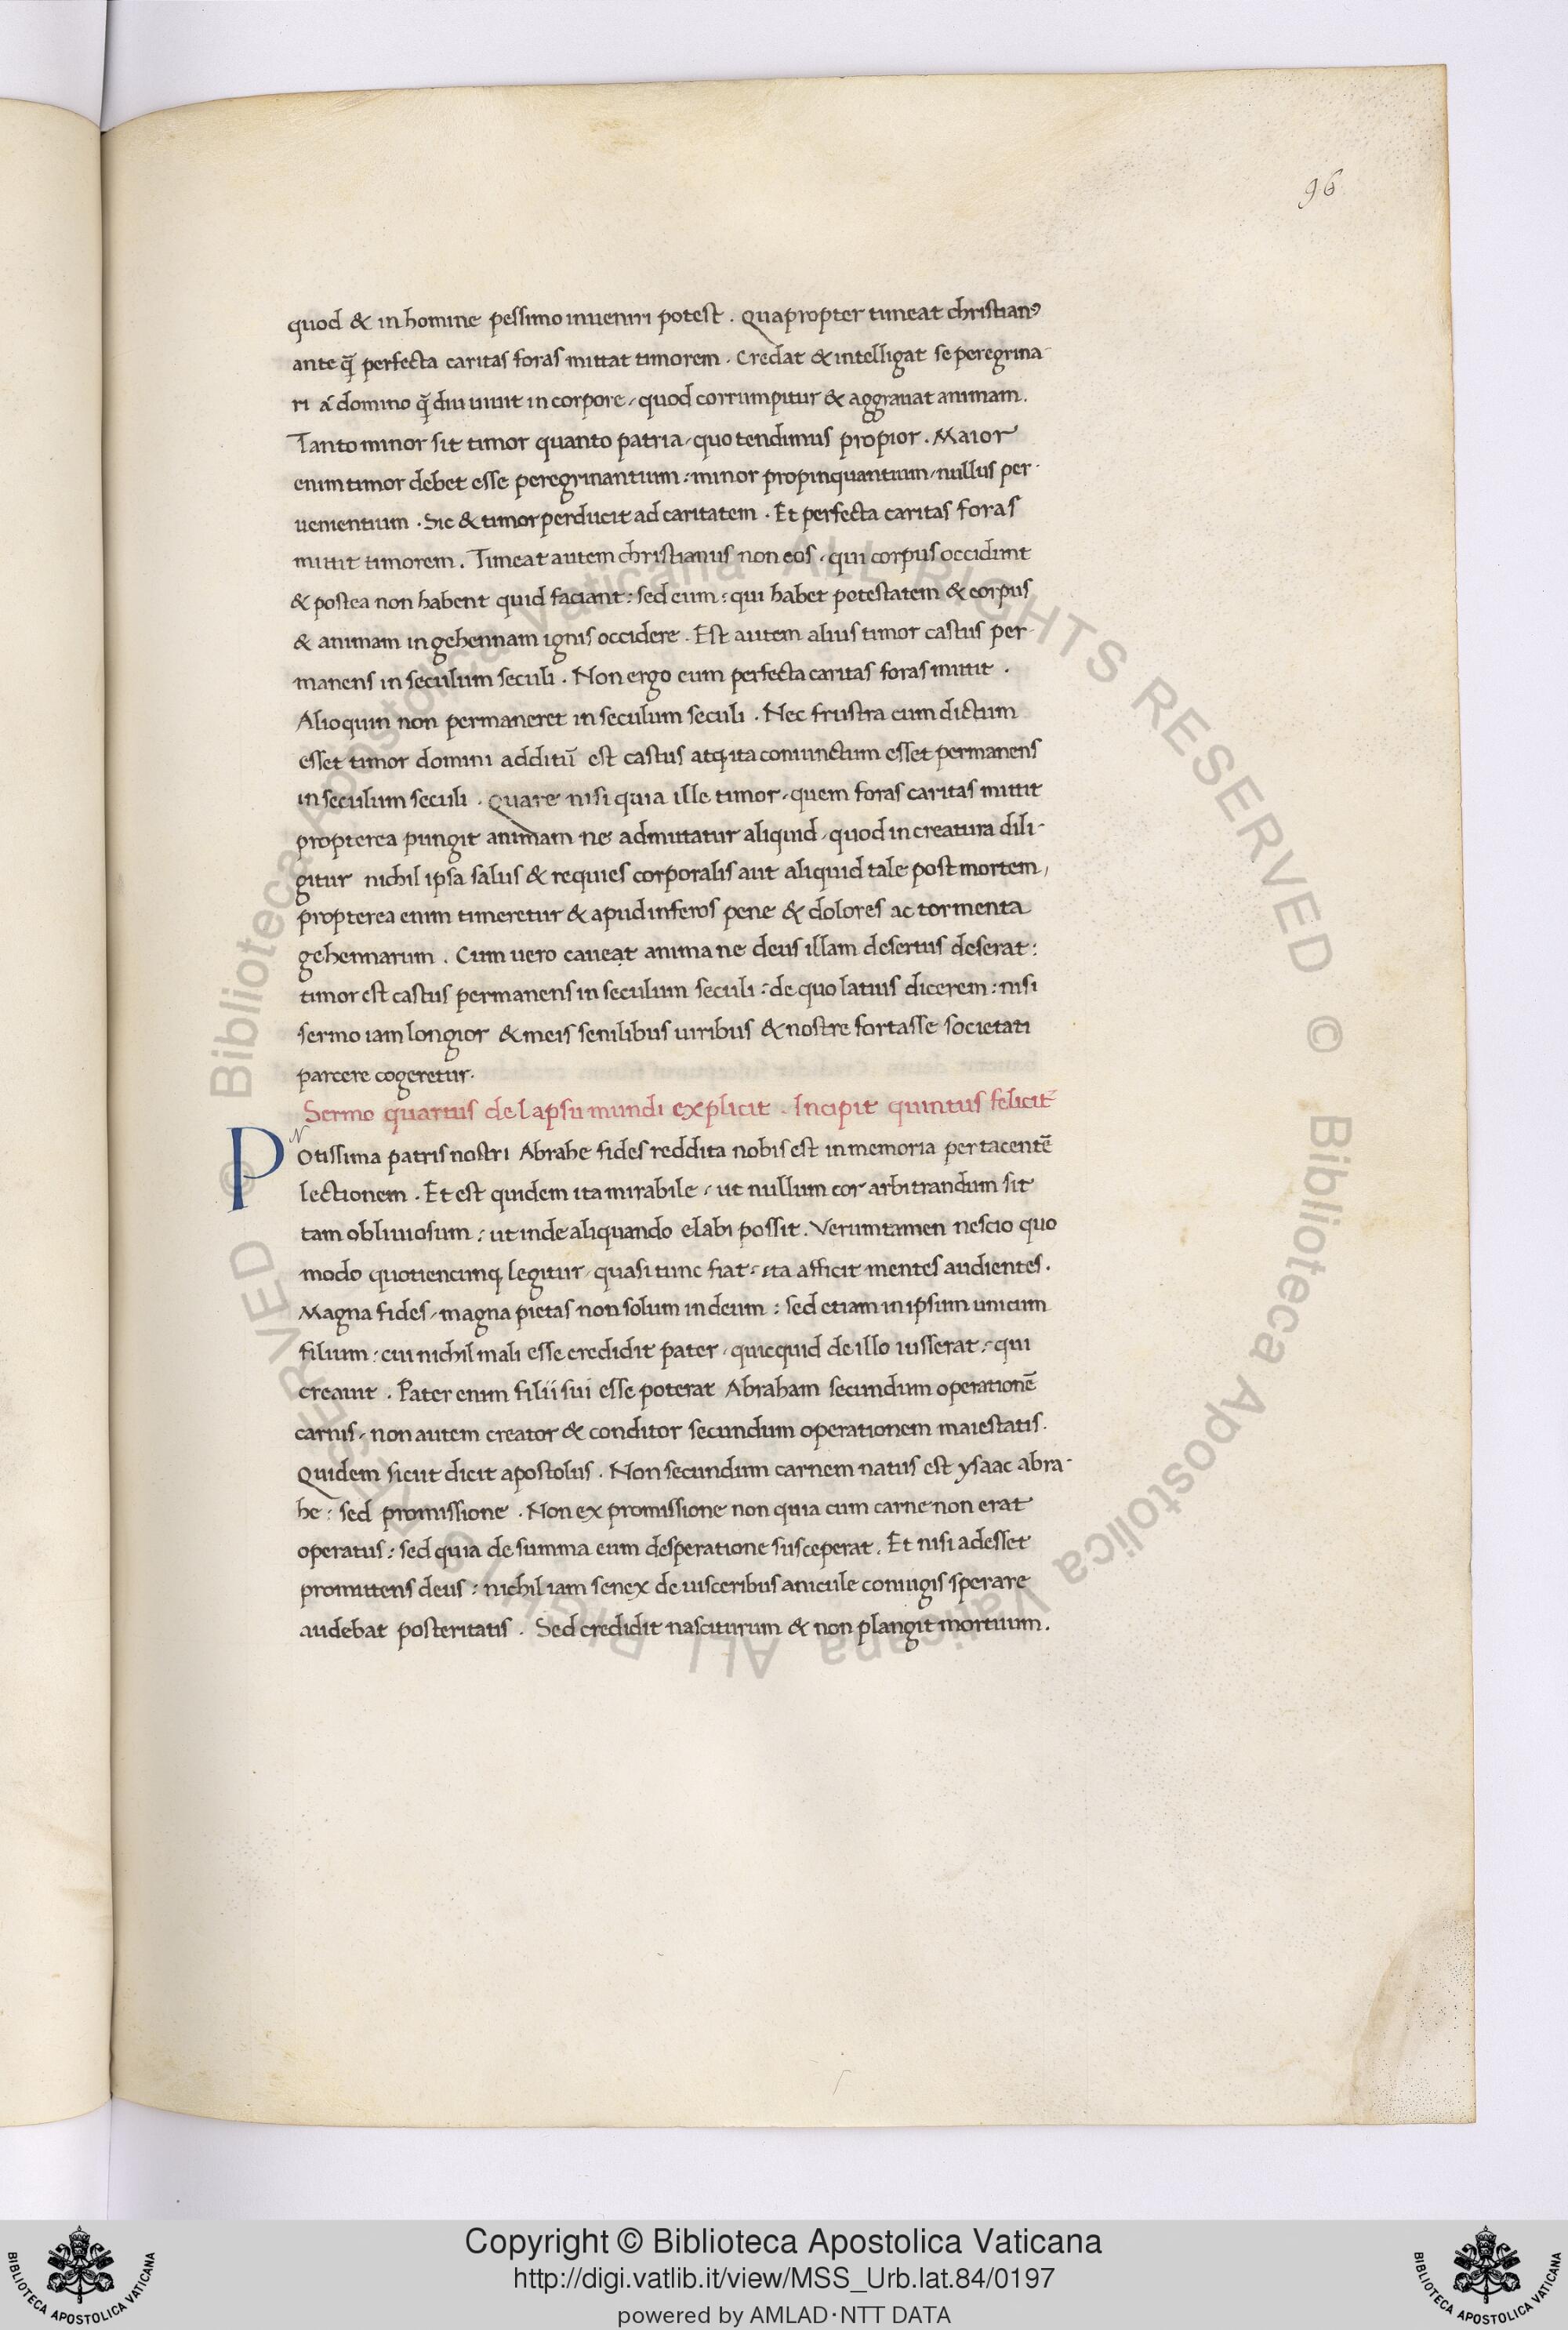 96
quod & in homine pessimo inueniri potest . Quapropter timeat christianꝰ
ante q̄ perfecta caritas foras mittat timorem . Credat & intelligat se peregrina-
ri a domino q̄ diu uiuit in corpore, quod corrumpitur & aggrauat animam.
Tanto minor sit timor quanto patria, quo tendimus propior . Maior
enim timor debet esse peregrinantium : minor propinquantium, nullus per-
uenientium . Sic & timor perducit ad caritatem . Et perfecta caritas foras
mittit timorem . Timeat autem christianus non eos, qui corpus occidunt
& postea non habent quid faciant : sed eum : qui habet potestatem & corpus
& animam in gehennam ignis occidere . Est autem alius timor castus per-
manens in seculum seculi . Non ergo eum perfecta caritas foras mittit .
Alioquin non permaneret in seculum seculi . Nec frustra cum dictum
esset timor domini additū est castus atqꝫ ita coniunctum esset permanens
in seculum seculi . Quare nisi quia ille timor, quem foras caritas mittit
propterea pungit animam ne admittatur aliquid, quod in creatura dili-
gitur nichil ipsa salus & requies corporalis aut aliquid tale post mortem,
propterea enim timeretur & apud inferos pene & dolores ac tormenta
gehennarum . Cum uero caueat anima ne deus illam desertus deserat :
timor est castus permanens in seculum seculi : de quo latius dicerem : nisi
sermo iam longior & meis senilibus uiribus & nostre fortasse societati
parcere cogeretur.
Sermo quartus de lapsu mundi explicit . Incipit quintus felicit̄
P N otissima patris nostri Abrahe fides reddita nobis est in memoria per tacentē
lectionem . Et est quidem ita mirabile, ut nullum cor arbitrandum sit
tam obliuiosum : ut inde aliquando elabi possit . Verumtamen nescio quo
modo quotienscunqꝫ legitur, quasi tunc fiat, ita afficit mentes audientes.
Magna fides, magna pietas non solum in deum : sed etiam in ipsum unicum
filium : cui nichil mali esse credidit pater, quicquid de illo iusserat, qui
creauit . Pater enim filii sui esse poterat Abraham secundum operationē
carnis, non autem creator & conditor secundum operationem maiestatis.
Quidem sicut dicit apostolus . Non secundum carnem natus est ysaac abra-
he : sed promissione . Non ex promissione non quia cum carne non erat
operatus : sed quia de summa eum desperatione susceperat . Et nisi adesset
promittens deus : nichil iam senex de uisceribus anicule coniugis sperare
audebat posteritatis . Sed credidit nasciturum & non plangit mortuum.
© Biblioteca Apostolica Vaticana ALL RIGHTS RESERVED © Biblioteca Apostolica Vaticana ALL RIGHTS RESERVED
Copyright © Biblioteca Apostolica Vaticana
http://digi.vatlib.it/view/MSS_Urb.lat.84/0197
powered by AMLAD·NTT DATA
BIBLIOTECA APOSTOLICA VATICANA
BIBLIOTECA APOSTOLICA VATICANA